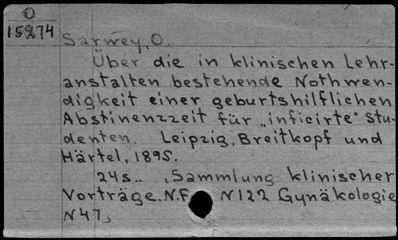 O
15274
Sarwey, O.
Über die in klinischen Lehr-
anstalten bestehende Nothwen-
digkeit einer geburtshilftlichen
Abstinenzzeit für „inficirte" Stu-
denten. Leipzig, Breitkopf und
Härtel, 1895.
24s.. „Sammlung klinischer
Vorträge. N.F. N122 Gynäkologie
N47„